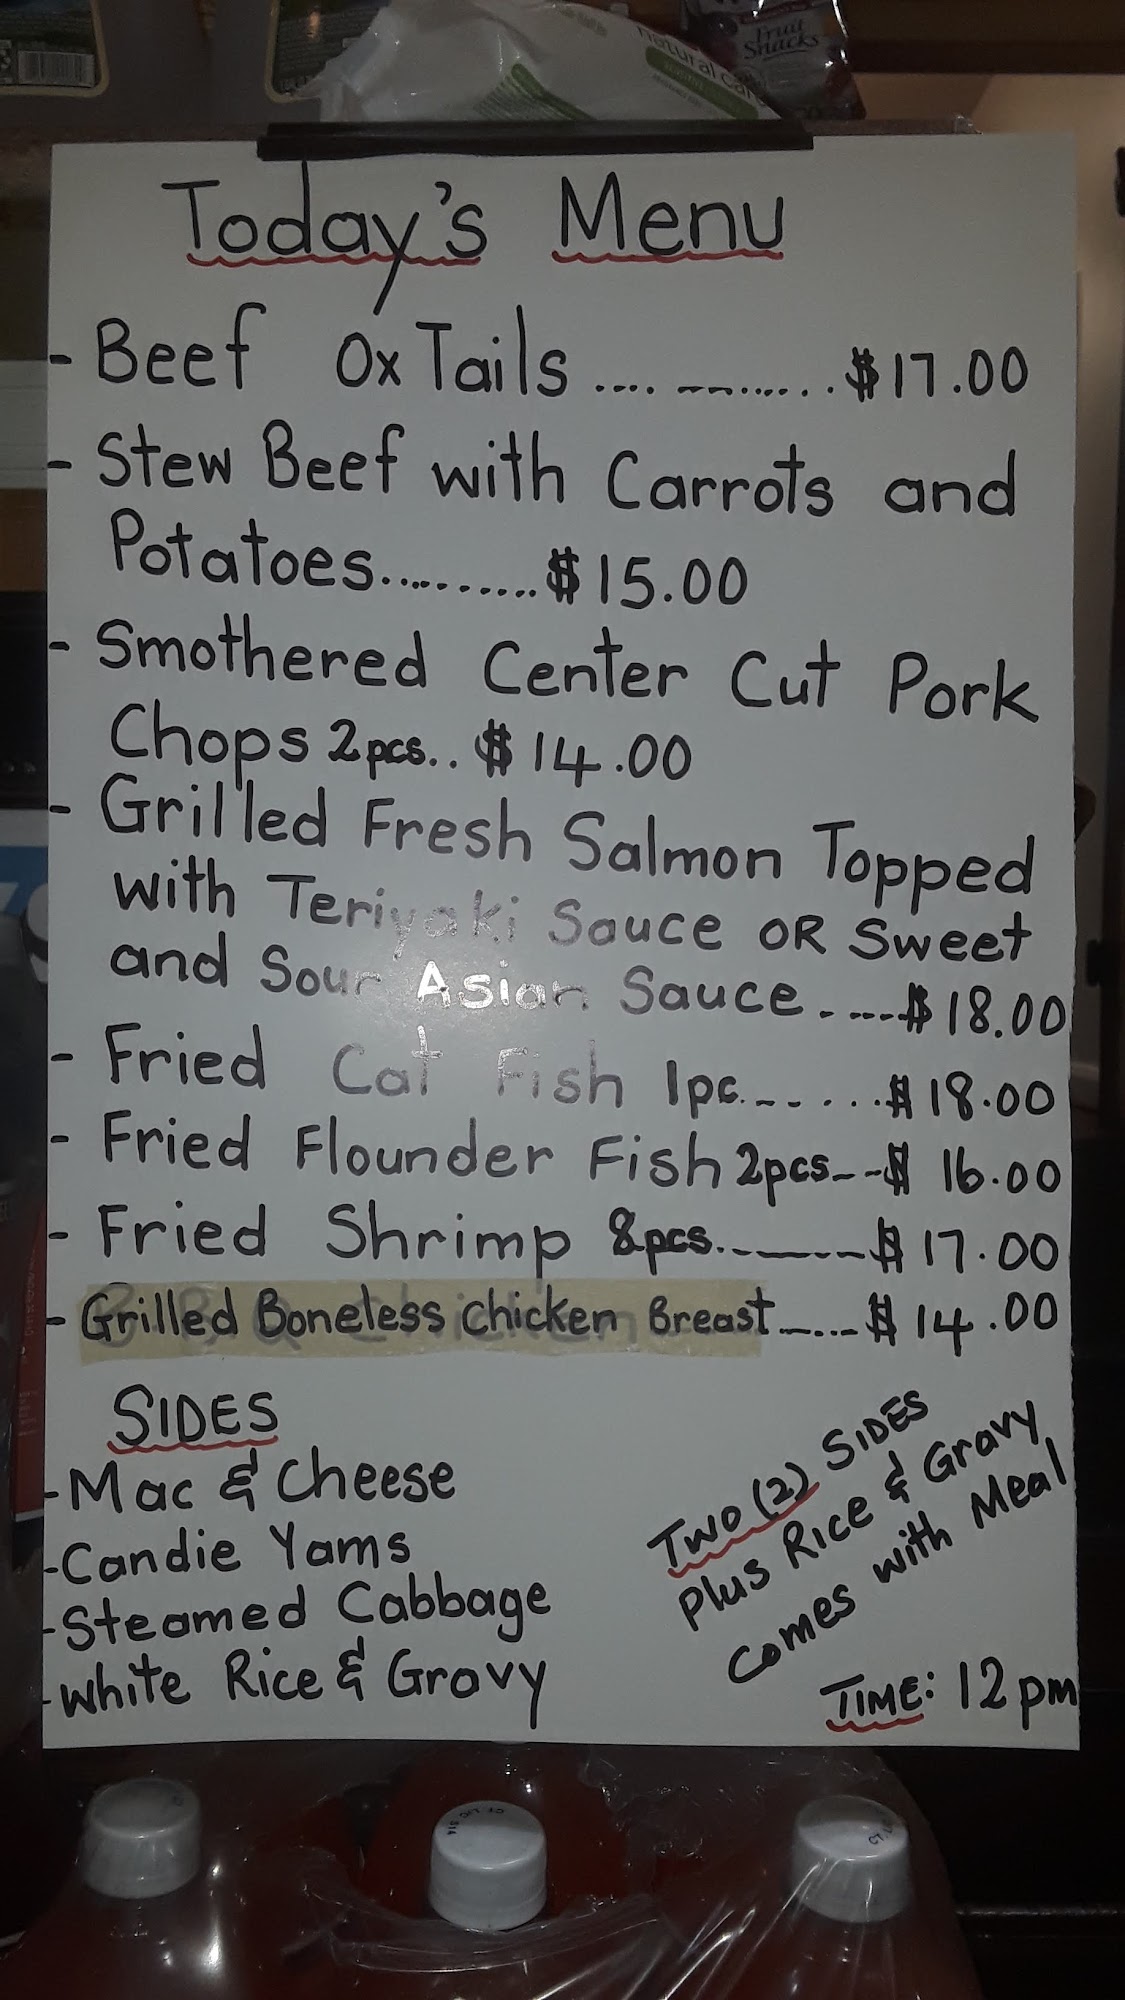 Fruit
Snacks
natural care
Today's Menu
- Beef Ox Tails .... ........... $17.00
- Stew Beef with Carrots and
Potatoes.......... $15.00
- Smothered Center Cut Pork
Chops 2pcs.. $14.00
- Grilled Fresh Salmon Topped
with Teriyaki Sauce OR Sweet
and Sour Asian Sauce . ---- $18.00
- Fried Cat Fish 1pc.-- .... $18.00
- Fried Flounder Fish 2pcs--- $16.00
- Fried Shrimp 8pcs.------- $17.00
- Grilled Boneless chicken Breast----- $14.00
SIDES
- Mac & Cheese
- Candie Yams
- Steamed Cabbage
- White Rice & Gravy
Two (2) SIDES
Plus Rice & Gravy
comes with Meal
TIME: 12pm